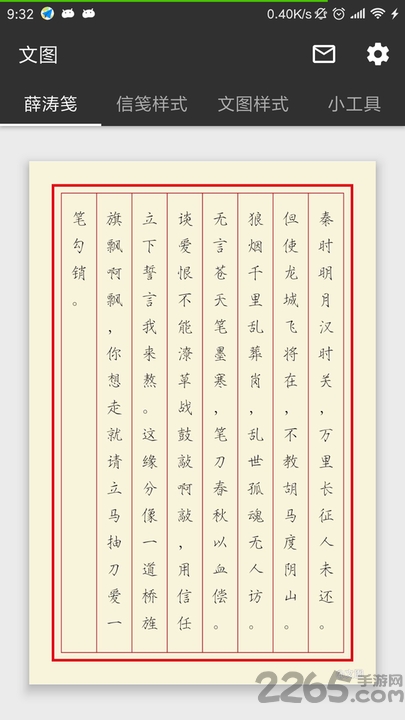 9:32
0.40K/s
文图
薛涛笺
信笺样式
文图样式
小工具
秦时明月汉时关，万里长征人未还。
但使龙城飞将在，不教胡马度阴山。
狼烟千里乱葬岗，乱世孤魂无人访。
无言苍天笔墨寒，笔刀春秋以血偿。
谈爱恨不能潦草战鼓敲啊敲，用信任
立下誓言我来熬。这缘分像一道桥旌
旗飘啊飘，你想走就请立马抽刀爱一
笔勾销。
2265.com
手游网